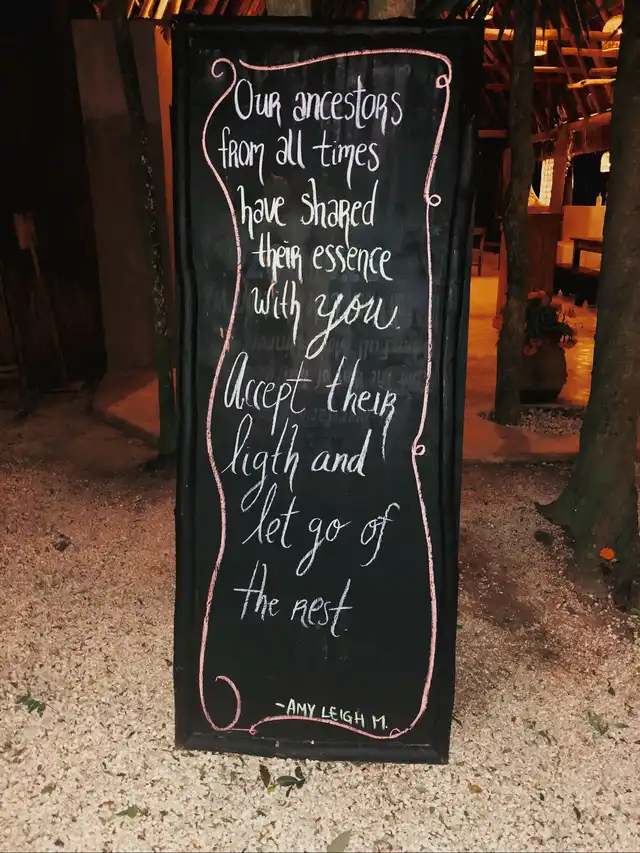 Our ancestors
from all times
have shared
their essence
with you.
Accept their
ligth and
let go of
the rest.
-AMY LEIGH M.